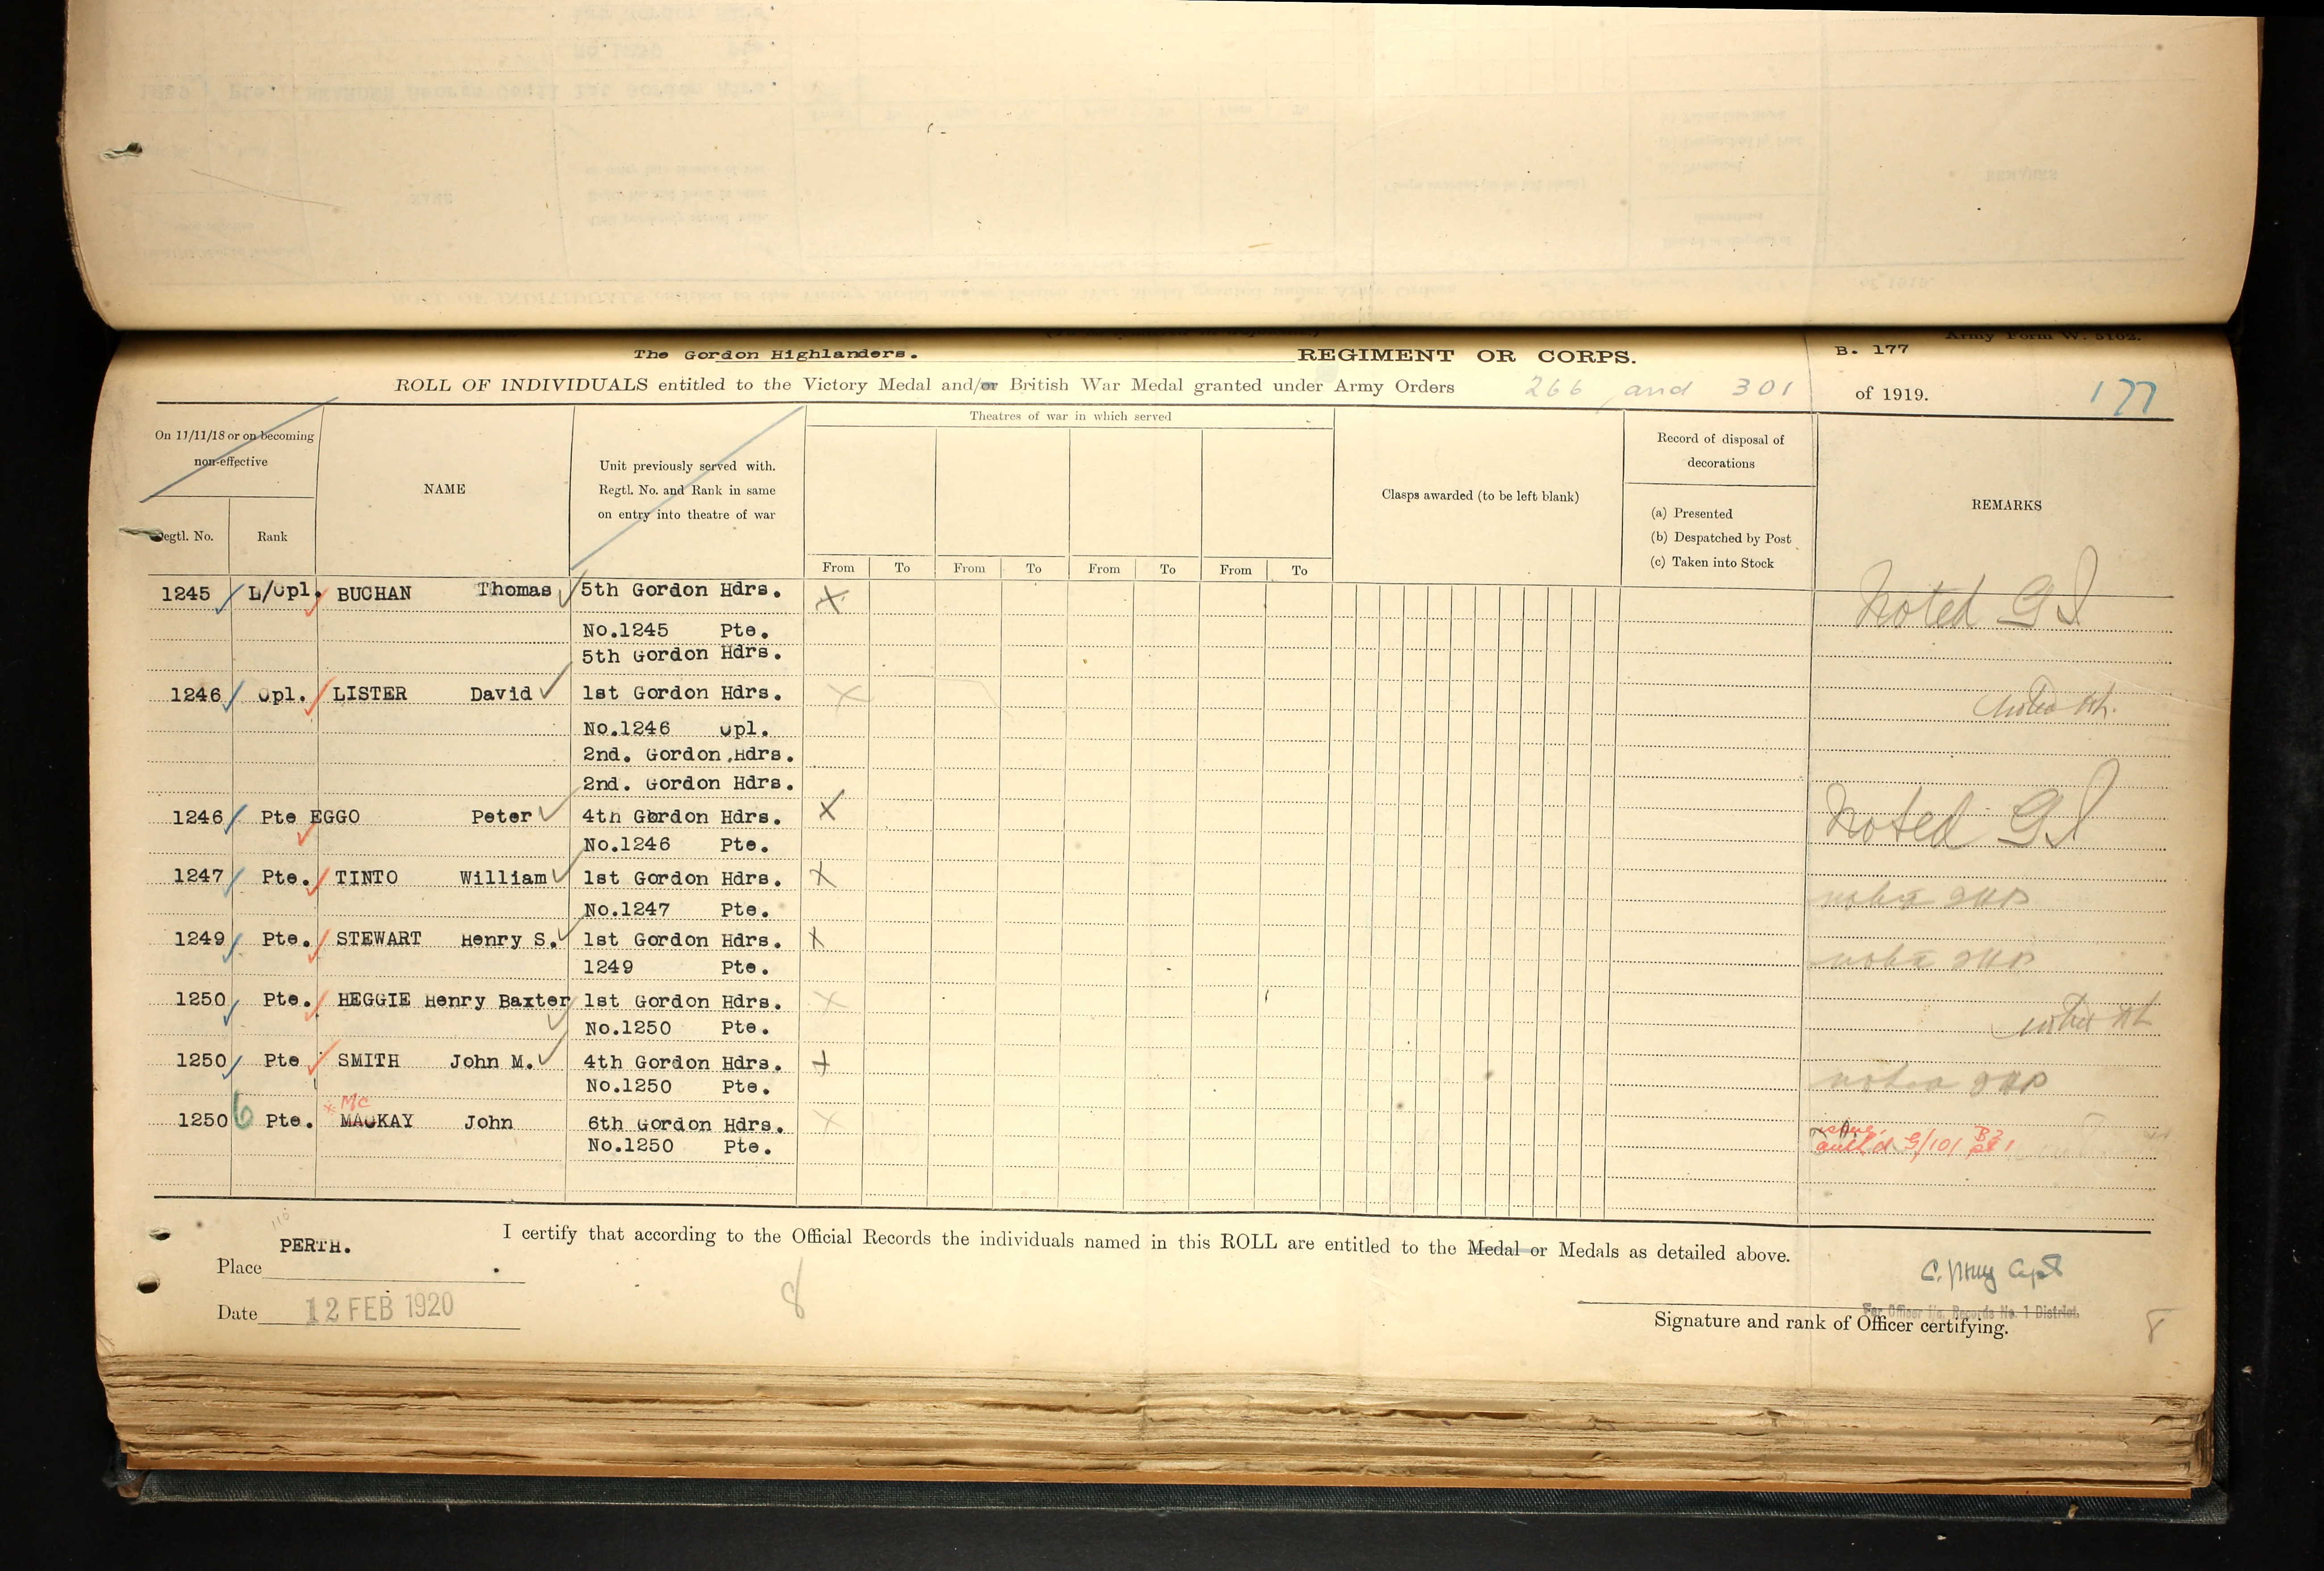 The Gordon Highlanders. REGIMENT OR CORPS. B. 177 Army Form W. 5102.
ROLL OF INDIVIDUALS entitled to the Victory Medal and/or British War Medal granted under Army Orders 266 and 301 of 1919. 177
On 11/11/18 or on becoming
non-effective
Regtl. No. Rank
NAME
Unit previously served with.
Regtl. No. and Rank in same
on entry into theatre of war
Theatres of war in which served
From To From To From To From To
Clasps awarded (to be left blank)
Record of disposal of
decorations
(a) Presented
(b) Despatched by Post
(c) Taken into Stock
REMARKS
1245 L/Cpl. BUCHAN Thomas 5th Gordon Hdrs. X Noted GS
No.1245 Pte.
5th Gordon Hdrs.
1246 Cpl. LISTER David 1st Gordon Hdrs. X Noted
No.1246 Cpl.
2nd. Gordon Hdrs.
2nd. Gordon Hdrs.
1246 Pte EGGO Peter 4th Gordon Hdrs. X Noted GS
No.1246 Pte.
1247 Pte. TINTO William 1st Gordon Hdrs. X
No.1247 Pte.
1249 Pte. STEWART Henry S. 1st Gordon Hdrs. X
1249 Pte.
1250 Pte. HEGGIE Henry Baxter 1st Gordon Hdrs. X
No.1250 Pte.
1250 Pte SMITH John M. 4th Gordon Hdrs. X
No.1250 Pte.
Mc
1250 6 Pte. MACKAY John 6th Gordon Hdrs. X
No.1250 Pte. G/101 B2
I certify that according to the Official Records the individuals named in this ROLL are entitled to the Medal or Medals as detailed above.
Place PERTH.
Date 12 FEB 1920
8
Capt
For Officer i/c. Records No. 1 District.
Signature and rank of Officer certifying.
8